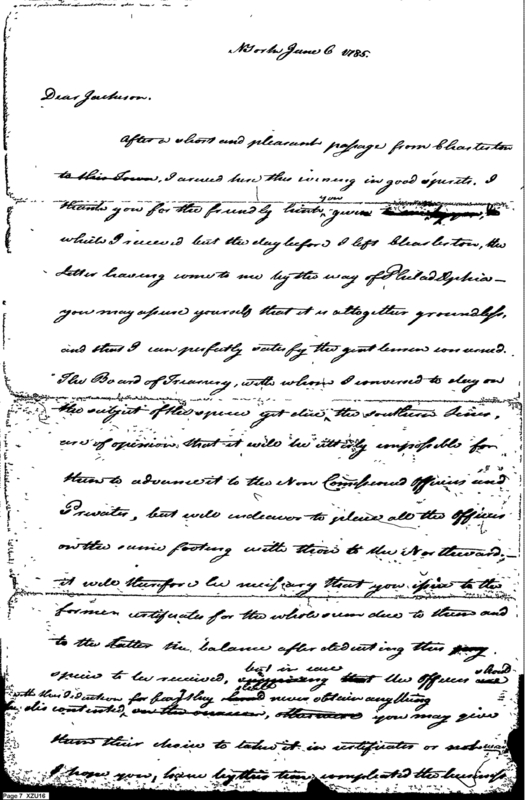 NYork June 6 1785.
Dear Jackson.
After a short and pleasant passage from Charleston
to this Town, I arrived here this evening in good spirits. I
thank you for the friendly hint you given
which I received but the day before I left Charleston, the
Letter having come to me by the way of Philadelphia—
you may assure yourself that it is altogether groundless,
and that I can perfectly satisfy the gentlemen concerned.
The Board of Treasury, with whom I conversed to day on
the subject of the specie yet due, the southern Lines,
are of opinion that it will be utterly impossible for
them to advance it to the Non Commissioned Officers and
Privates, but will endeavor to place all the Officers
on the same footing with those to the Northward;
it will therefore be necessary that you issue to the
former certificates for the whole sum due to them and
to the latter the balance after deducting the pay
but in case should
specie to be received, the Officers
still
with this deduction for fear they never obtain anything
be discontented, you may give
them their choice to take it in certificates or not
I hope you, have by this time completed the business
Page 7 XZU16